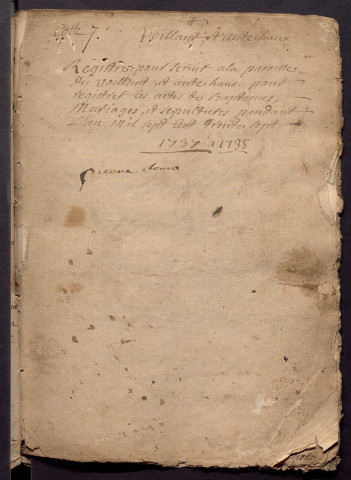 Cotte 7. Voillans, et autechaux
Registres pour servir a la paroisse
de Voillans et autechaux pour
registrer les actes des Baptemes,
Mariages, et sepultures pendant
L'an mil sept Cent trente sept
1737 a 1738